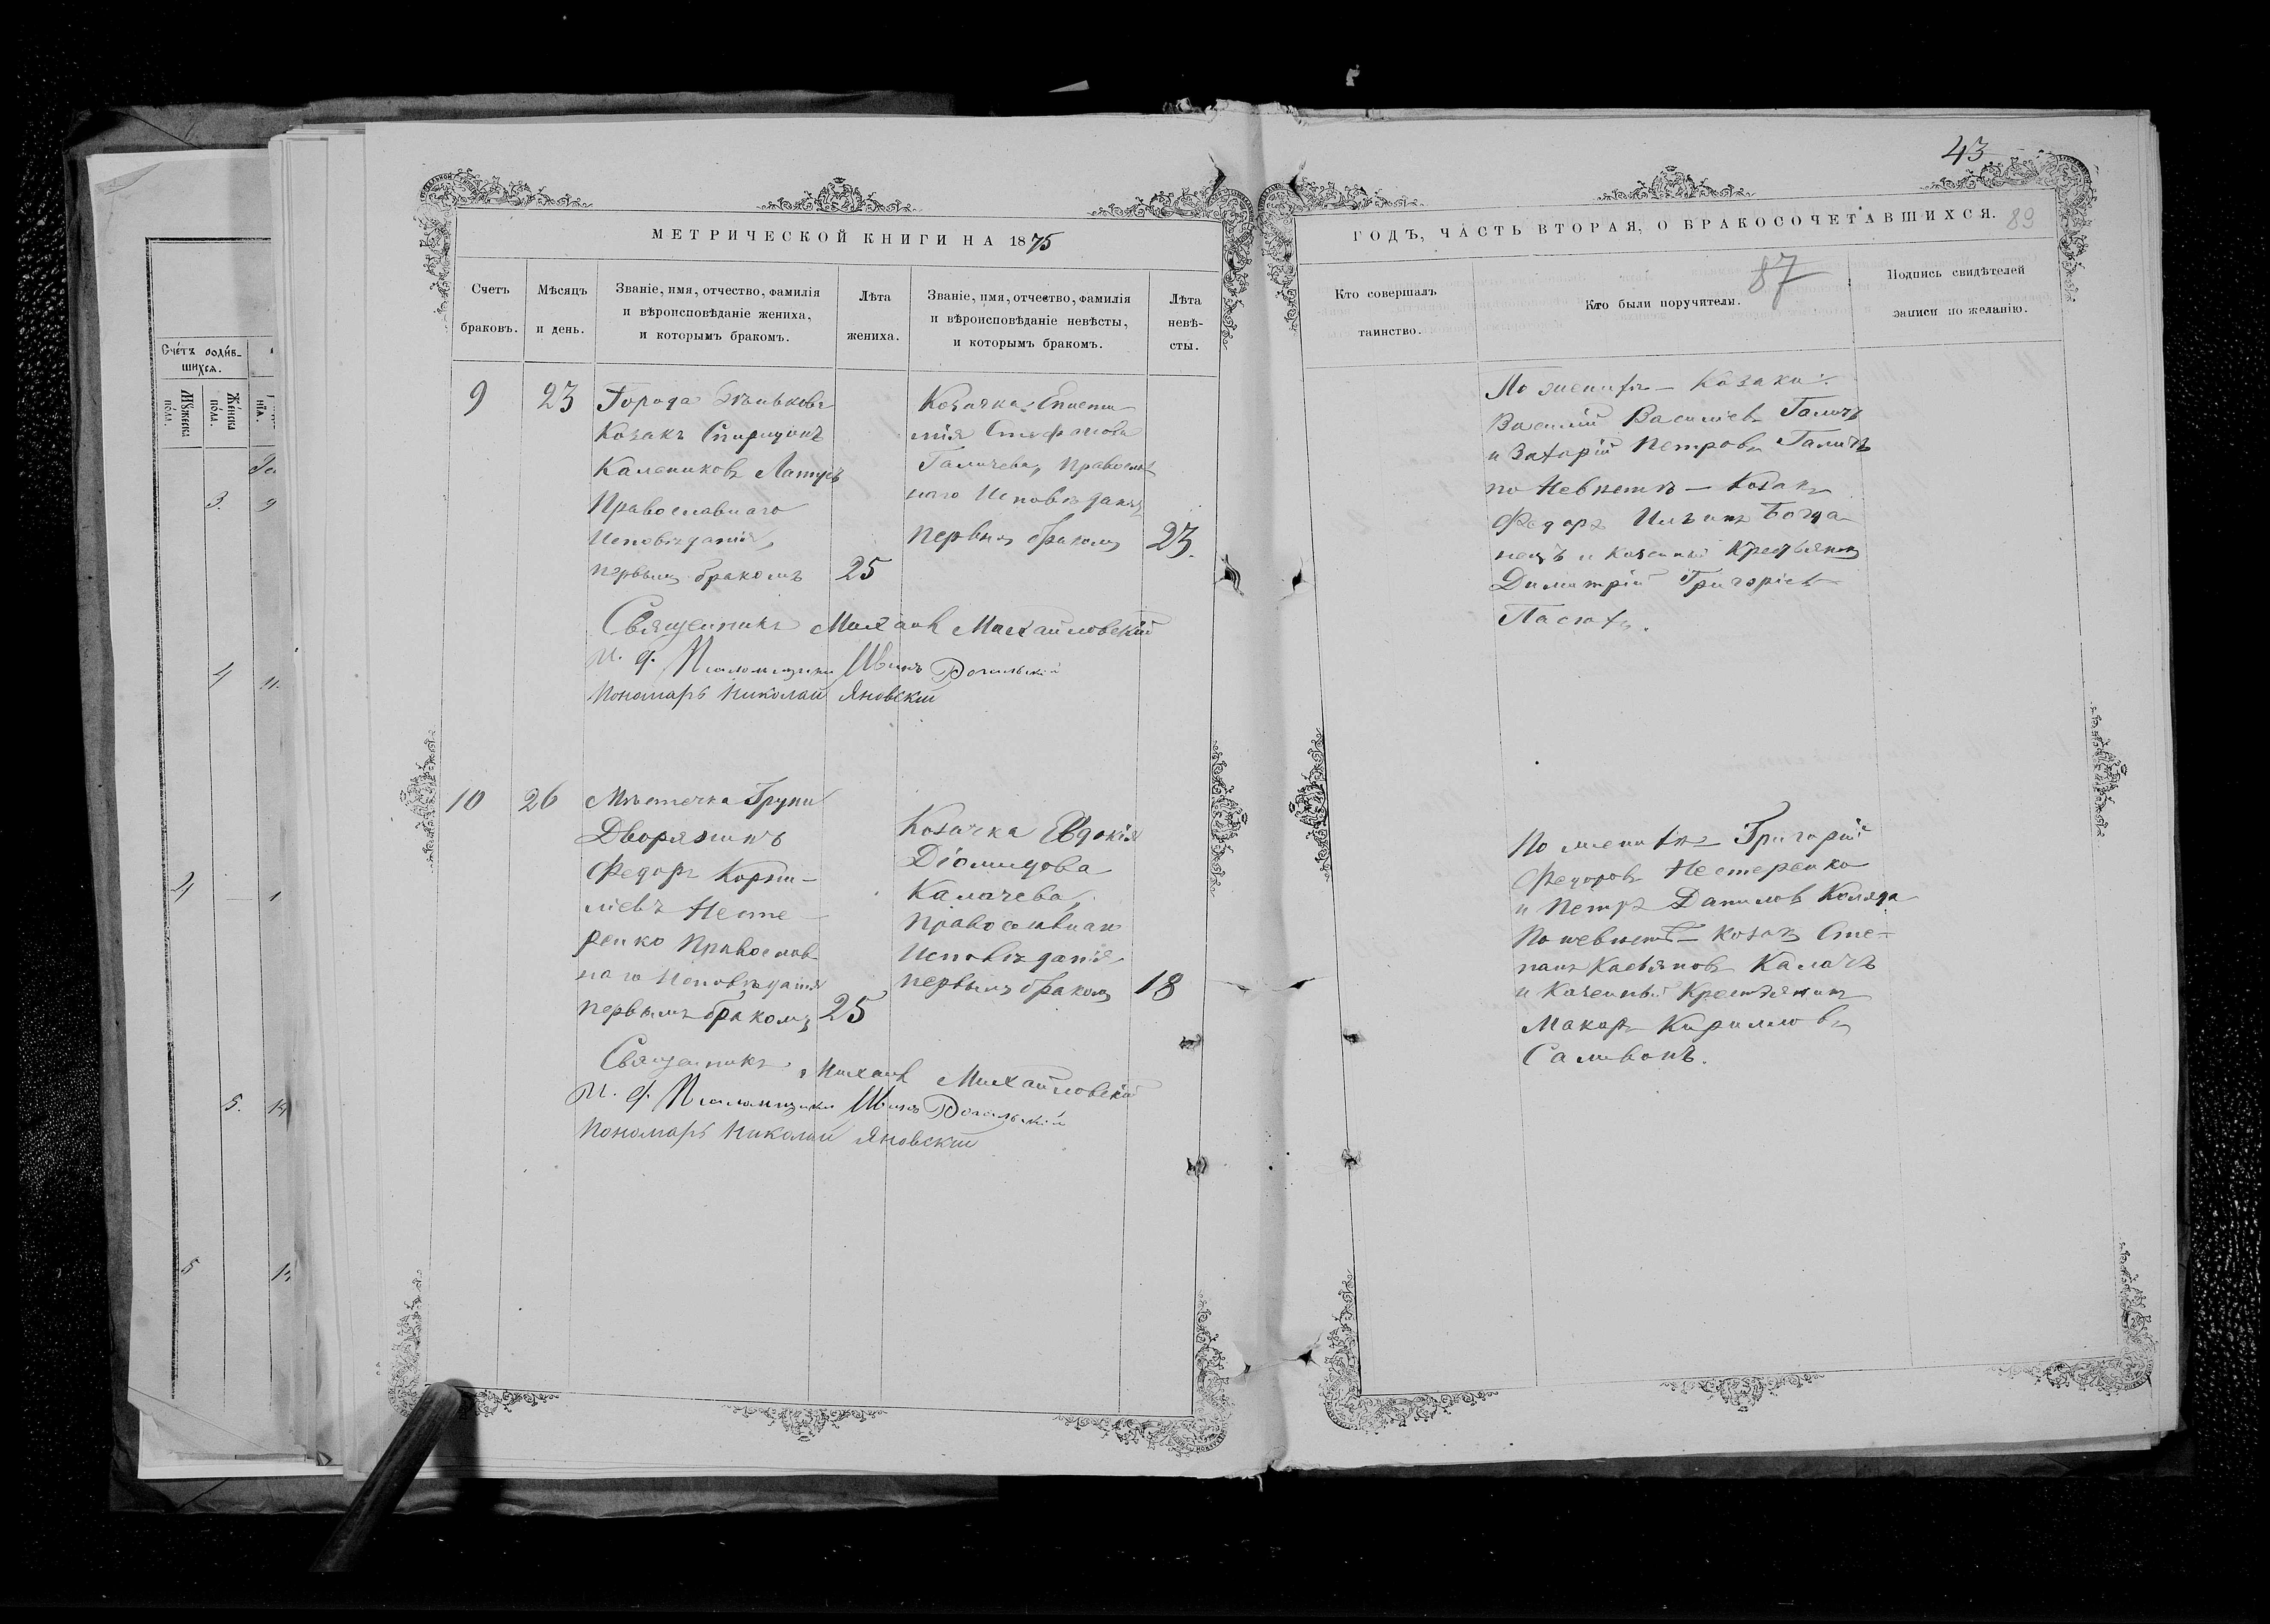 Счетъ родив-
шихся.
Мужеска
пола.
Женска
пола.
3. 9
4 11.
4 — 1
5. 14
5
МЕТРИЧЕСКОЙ КНИГИ НА 1875
Счетъ
браковъ.
Мѣсяцъ
и день.
Званіе, имя, отчество, фамилія
и вѣроисповѣданіе жениха,
и которымъ бракомъ.
Лѣта
жениха.
Званіе, имя, отчество, фамилія
и вѣроисповѣданіе невѣсты,
и которымъ бракомъ.
Лѣта
невѣ-
сты.
9
23
Города Зѣнькова
Козакъ Спиридонъ
Калениковъ Латушъ
Православнаго
Исповѣданія,
первымъ бракомъ
25
Козачка Еписти-
мія Стефанова
Галичева, православ
наго Исповѣданія
первымъ бракомъ
23.
Священникъ Михаилъ Михайловскій
и. д. Псаломщика Иванъ
Пономарь Николай Яновскій
10
26
Мѣстечка Груни
Дворянинъ
Федоръ Корни-
ліевъ Несте-
ренко Православ
наго Исповѣданія
первымъ бракомъ
25
Козачка Евдокія
Діомидова
Калачева,
православнаго
Исповѣданія
первымъ бракомъ
18
Священникъ Михаилъ Михайловскій
и. д. Псаломщика Иванъ
Пономарь Николай Яновскій
43
ГОДЪ, ЧАСТЬ ВТОРАЯ, О БРАКОСОЧЕТАВШИХСЯ.
89
87
Кто совершалъ
таинство.
Кто были поручители.
Подпись свидѣтелей
записи по желанію.
По женихѣ — Козаки:
Василій Васильевъ Галичъ
и Захарій Петровъ Галичъ
по Невѣстѣ — Козакъ
Федоръ Ильинъ Богда-
нецъ и казенный Крестьянинъ
Димитрій Григоріевъ
Пасюта.
По женихѣ Григорій
Федоровъ Нестеренко
и Петръ Даниловъ Коляда
По невѣстѣ — козакъ Сте-
панъ Касьяновъ Калачъ
и Казенный Крестьянинъ
Макаръ Кирилловъ
Саливонъ.